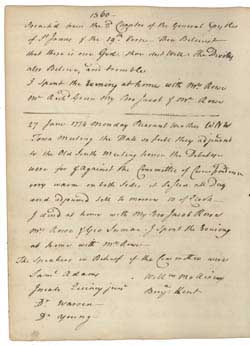 1360
preach'd from the 2d Chapter of the General Epistle
of St James & the 19th Verse. Thou Believest
that there is one God, thou dost Well. The Devils
also Believe, and tremble
I Spent the Evening at home with Mrs Rowe
My Bro Jacob & Mrs Rowe
27 June 1774 Monday Pleasant Weather
Town Meeting the Hall so full they adjourn'd
to the Old South Meeting house The Debates
were for & Against the Committee of Correspondence
very warm on both sides it lasted all Day
and adjourned till to morrow 10 of Clock
I dined at home with My Bro Jacob Rowe
Mrs Rowe & Geo Inman. I Spent the Evening
at home with Mrs Rowe
The Speakers in Behalf of the Committee were
Saml Adams
Benj Kent
Josiah Quincy junr
Dr Warren
Dr Young